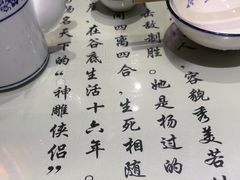 人，容貌秀美若
敌制胜。她是杨过的
间四离四合，生死相随
崖，在谷底生活十六年。
名天下的“神雕侠侣”